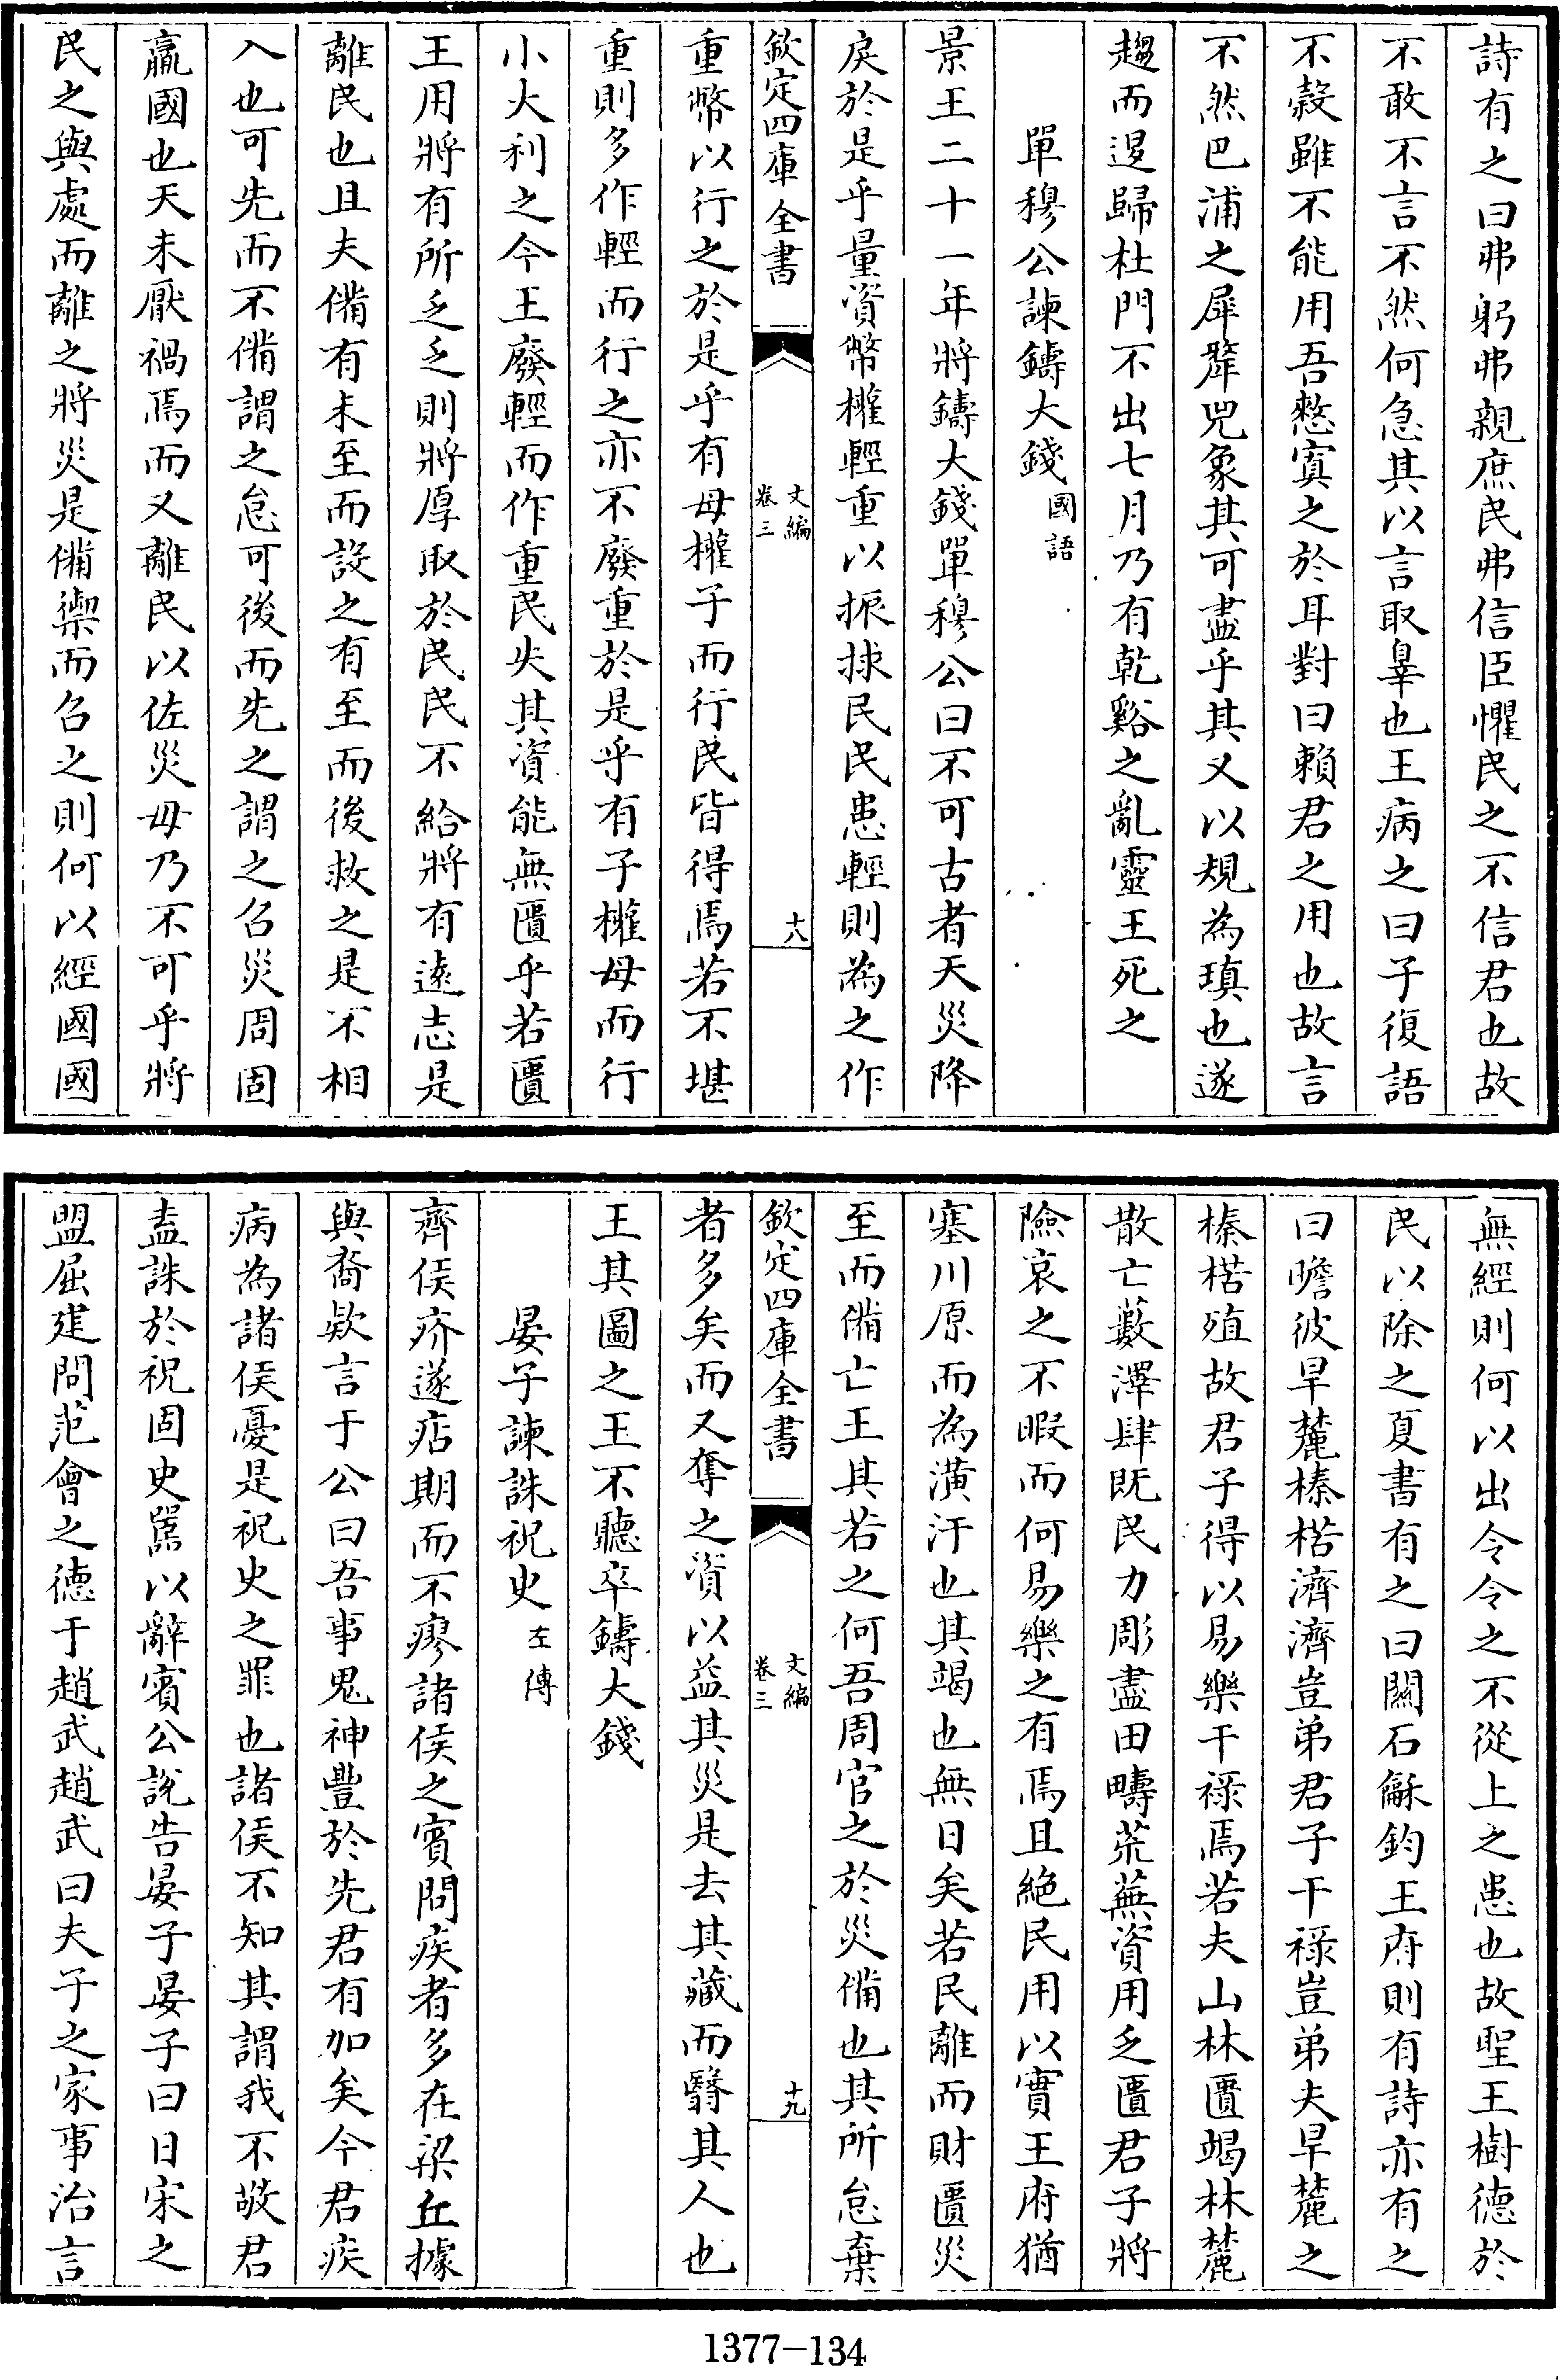 詩有之曰弗躬弗親庶民弗信臣懼民之不信君也故
不敢不言不然何急其以言取辠也王病之曰子復語
不穀雖不能用吾憖寘之於耳對曰賴君之用也故言
不然巴浦之犀犛兕象其可盡乎其又以規為瑱也遂
趨而退歸杜門不出七月乃有乾谿之亂靈王死之
單穆公諫鑄大錢國語
景王二十一年將鑄大錢單穆公曰不可古者天災降
戾於是乎量資幣權輕重以振捄民民患輕則為之作
欽定四庫全書
文編
卷三
十八
重幣以行之於是乎有母權子而行民皆得焉若不堪
重則多作輕而行之亦不廢重於是乎有子權母而行
小大利之今王廢輕而作重民失其資能無匱乎若匱
王用將有所乏乏則將厚取於民民不給將有遠志是
離民也且夫備有未至而設之有至而後救之是不相
入也可先而不備謂之怠可後而先之謂之召災周固
羸國也天未厭禍焉而又離民以佐災毋乃不可乎將
民之與處而離之將災是備禦而召之則何以經國國
無經則何以出令令之不從上之患也故聖王樹德於
民以除之夏書有之曰關石龢鈞王府則有詩亦有之
曰瞻彼旱麓榛楛濟濟豈弟君子干祿豈弟夫旱麓之
榛楛殖故君子得以易樂干祿焉若夫山林匱竭林麓
散亡藪澤肆既民力彫盡田疇荒蕪資用乏匱君子將
險哀之不暇而何易樂之有焉且絕民用以實王府猶
塞川原而為潢汙也其竭也無日矣若民離而財匱災
至而備亡王其若之何吾周官之於災備也其所怠棄
欽定四庫全書
文編
卷三
十九
者多矣而又奪之資以益其災是去其藏而翳其人也
王其圖之王不聽卒鑄大錢
晏子諫誅祝史左傳
齊侯疥遂痁期而不瘳諸侯之賓問疾者多在梁丘據
與裔欵言于公曰吾事鬼神豐於先君有加矣今君疾
病為諸侯憂是祝史之罪也諸侯不知其謂我不敬君
盍誅於祝固史嚚以辭賓公說告晏子晏子曰日宋之
盟屈建問范會之德于趙武趙武曰夫子之家事治言
1377-134